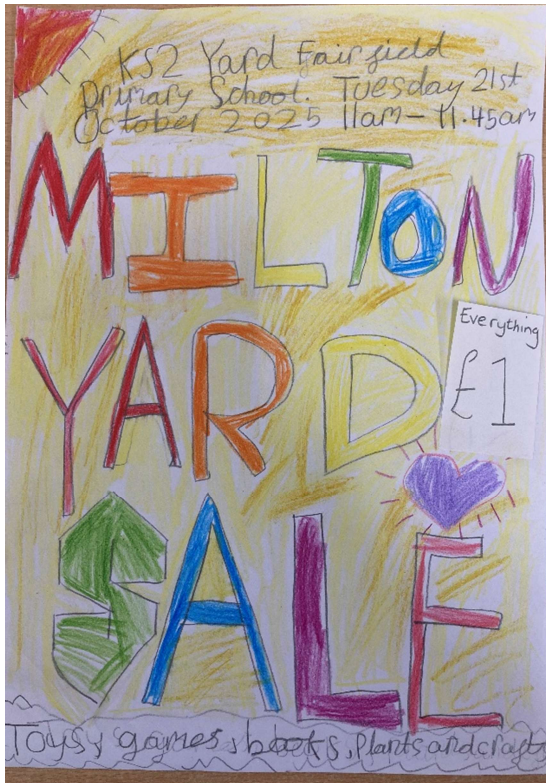 KS2 Yard Fairfield
Primary School. Tuesday 21st
October 2025 11am - 11.45am
MILTON
YARD
Everything
£1
SALE
Toys, games, books, plants and crafts